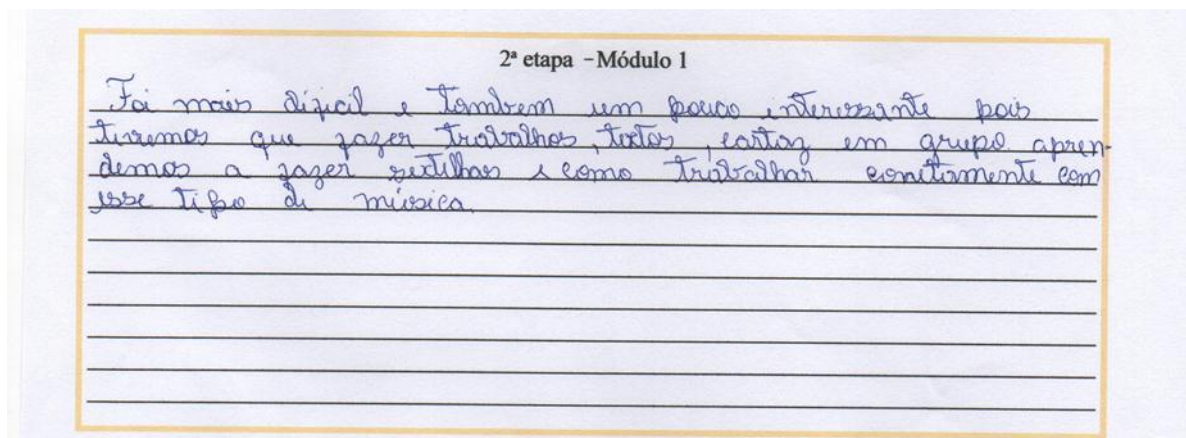 2ª etapa - Módulo 1
Foi mais difícil e também um pouco interessante pois
tivemos que fazer trabalhos, textos, cartaz em grupo apren-
demos a fazer sextilhas e como trabalhar com
esse tipo de música.